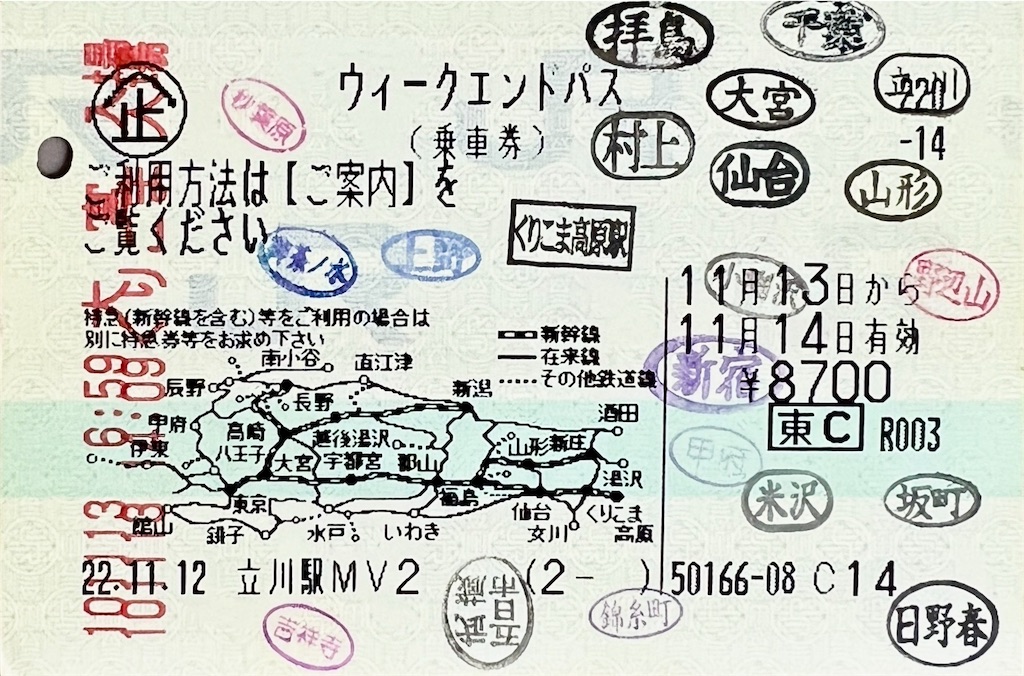 拝島
千葉
企
秋葉原
ウィークエンドパス
大宮
立川
-2011
-14
(乗車券)
村上
仙台
山形
ご利用方法は【ご案内】を
ご覧ください。
上野
くりこま高原駅
小淵沢
野辺山
11月13日から
11月14日有効
特急(新幹線を含む)等をご利用の場合は
別に特急券等をお求め下さい
新幹線
在来線
その他鉄道線
新宿
¥8700
東C
R003
南小谷
直江津
辰野
長野
新潟
酒田
甲府
高崎
越後湯沢
山形
新庄
伊東
八王子
大宮
宇都宮
郡山
湯沢
東京
福島
仙台
くりこま
高原
館山
銚子
水戸
いわき
女川
甲府
米沢
坂町
22.11.12 立川駅MV2 (2- )
50166-08 C14
吉祥寺
武蔵
五日市
錦糸町
日野春